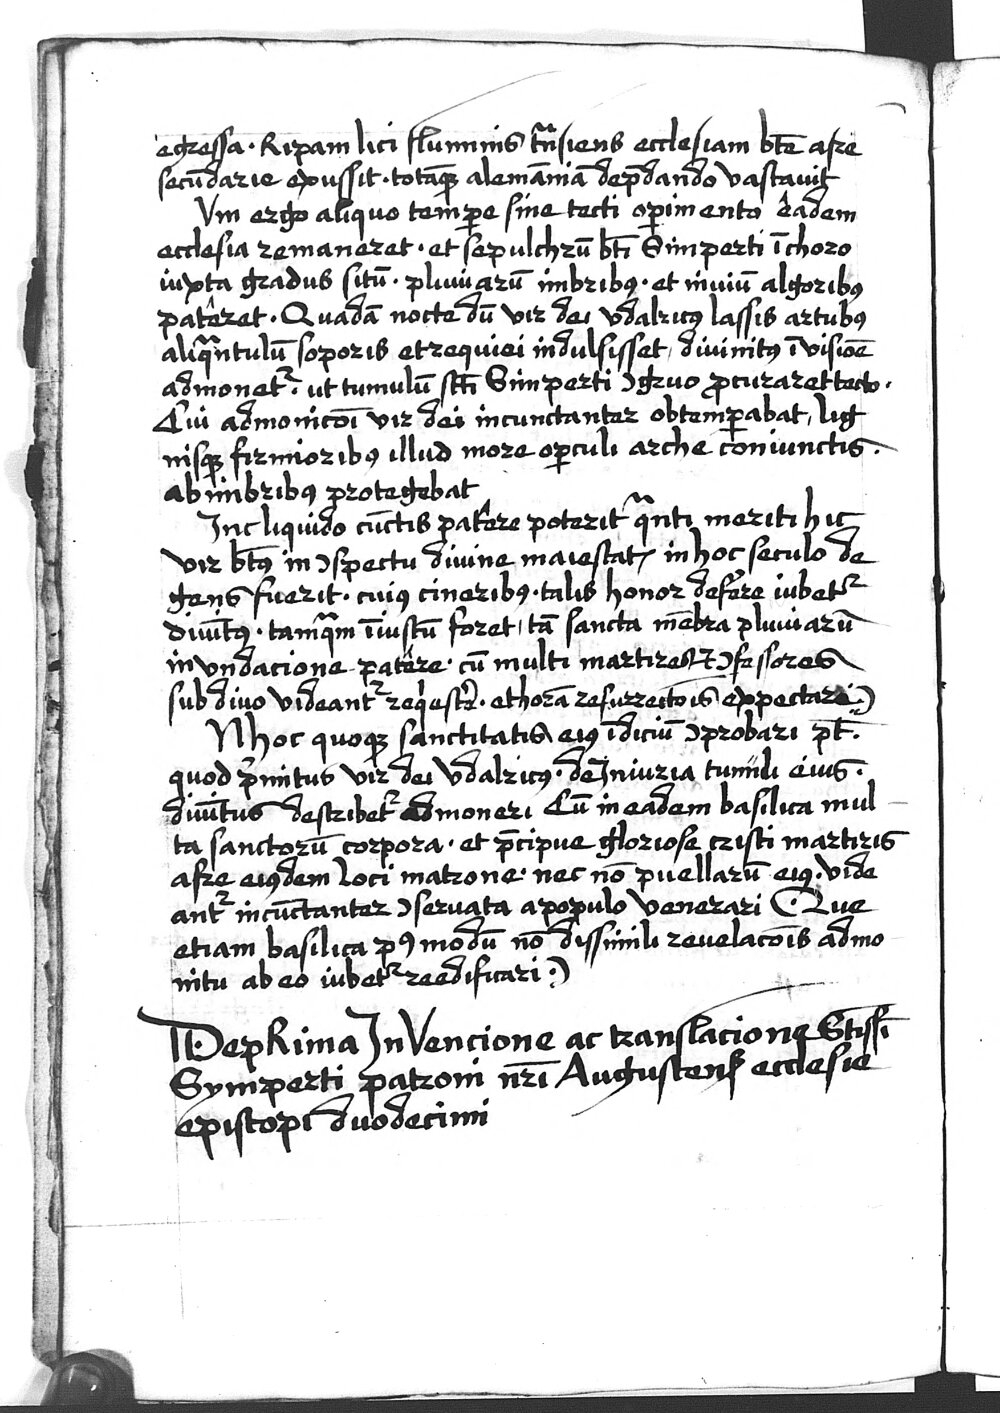 egressa · Ripam lici fluminis tn̄siens ecclesiam btē afre
secūdarie expussit · totāqꝫ alemāniā dep̄dando vastauit
Vm ergo aliquo temꝑe sine tecti oꝑimento eadem
ecclesia remaneret · et sepulchrū bt̄i Simperti ī choro
iuxta gradus sitū · pluuiarū imbribꝰ · et niuiū algoribꝰ
patēret · Quadā nocte dū vir dei vdalricꝰ lassis artubꝰ
aliqᵃntulū soporis et requiei indulsisset / diuinitꝰ ī visiōe
admonetᷣ · ut tumulū sct̄i Simperti ꝯgruo ꝓcuraret tecto ·
Cui admonicōi vir dei incunctanter obtemꝑabat / lig
nisqꝫ firmioribꝰ illud more oꝑculi arche coniunctis ·
ab imbribꝰ protegebat
Inc liquido cūctis patēre poterit qᵃnti meriti hic
vir bt̄ꝰ in ꝯspectu diuine maiestatꝭ in hoc seculo de
gens fuerit · cuiꝰ cineribꝰ · talis honor defēre iubetᷣ
diuīt9 · tamqᵃm īiustū foret / tā sancta mēbra pluuiarū
in vndacione patēre · cū multi martires ⁊ ꝯfessores
sub diuo videantᷣ reqͥestꝯe · et horā resurrectōis expectare
N hoc quoqꝫ sanctitatis eiꝰ īdiciū ꝯprobari pt̄ ·
quod p̄mitus vir dei Vdalricꝰ · de Iniuria tumuli eius ·
diuīt​us describetᷣ admoneri Cū in eadem basilica mul
ta sanctorū corpora · et p̄cipue gloriose cristi martiris
afre eiꝰdem loci matrone · nec nō puellarū eiꝰ · vide
antᷣ incūctanter ꝯseruata a populo venerari Que
etiam basilica pꝰ modū nō dissimili reuelacōis admo
nitu ab eo iubetᷣ reedificari ·
De pRima InVencione ac translacione Stissi​̄
Symperti patroni nr̄i Augusten̄ ecclesie
episcopi duodecimi